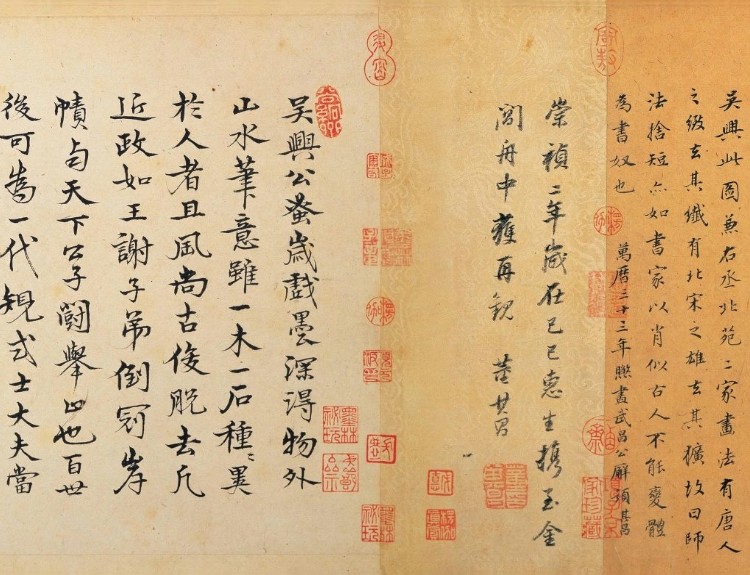 吳興此圖兼右丞北苑二家畫法有唐人
之緻去其纖有北宋之雄去其獷故曰師
法捨短亦如書家以肖似古人不能變體
為書奴也 萬曆三十三年㬱畫武昌公廨題其昌
崇禎二年歲在己巳惠生攜至金
閶舟中獲再觀 董其昌
吳興公蚤歲戲墨深得物外
山水筆意雖一木一石種〻異
於人者且風尚古俊脫去凡
近政如王謝子弟倒冠岸
幘與天下公子鬪舉止也百世
後可為一代規式士大夫當